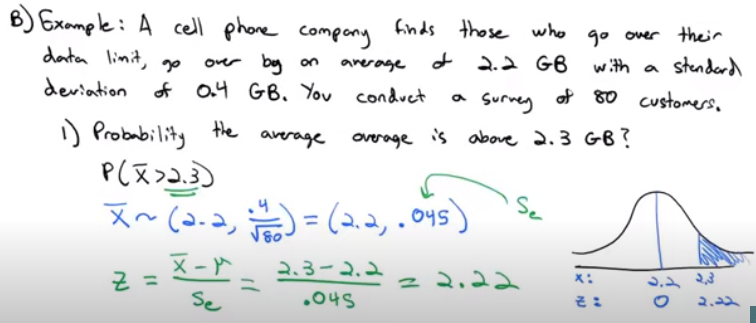 B) Example: A cell phone company finds those who go over their
data limit, go over by an average of 2.2 GB with a standard
deviation of 0.4 GB. You conduct a survey of 80 customers.
1) Probability the average overage is above 2.3 GB?
P(x̄>2.3)
x̄~(2.2, .4/√80) = (2.2, .045) Se
z = (x̄-μ)/Se = (2.3-2.2)/.045 = 2.22
x: 2.2 2.3
z: 0 2.22